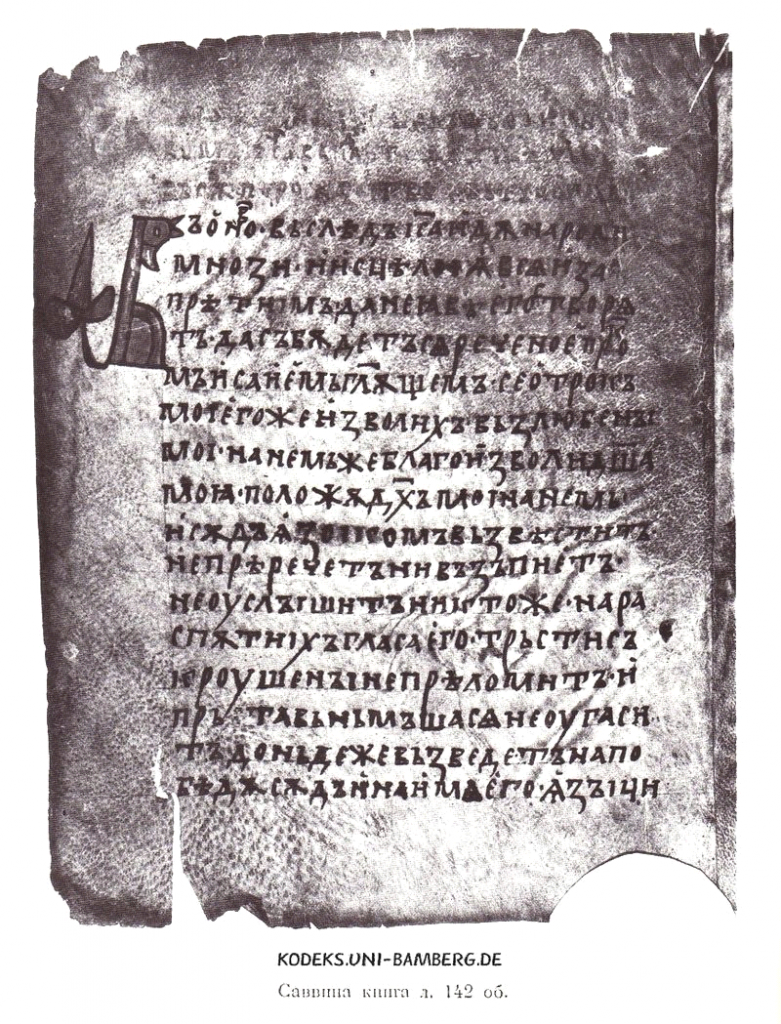 Въ о҃но · въ слѣдъ і҃са идѫ народи
мнози · и исцѣли ѩ вьсѧ и за
прѣти имъ да не ѣвѣ его творѧ
тъ · да събѫдетъ сѧ реченое про
мь исаиемь гл҃ѭщемъ · се отрокъ
мои егоже изволихъ · възлюбены
мої · на немьже благоизволи дш҃а
моꙗ · положѫ дх҃ъ мої на немь
и сѫдъ ѩзъікомъ възвѣститъ ·
не прѣречетъ ни възъпиетъ ·
не оуслъішитъ никтоже · на ра
спѫтиіхъ гласа его · трьсти съ
кроушены не прѣломитъ · и
прьта вьньмъша сѧ не оугаси
тъ доньдеже възведетъ на по
бѣдѫ сѫдъ и на имѧ его · ѩзъіци
KODEKS.UNI-BAMBERG.DE
Саввина книга л. 142 об.